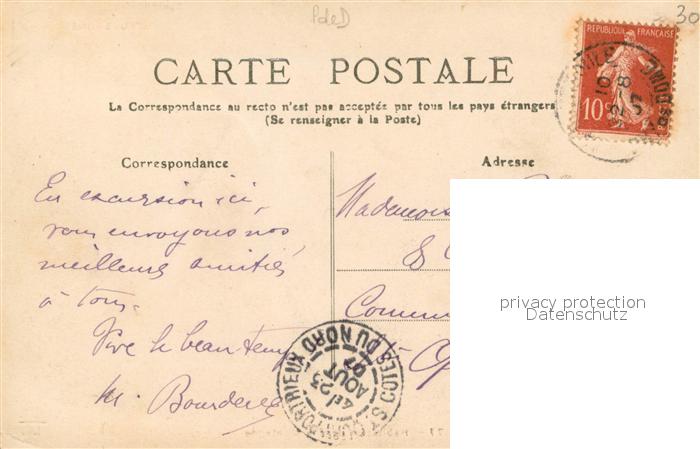 PdeD
30
CARTE POSTALE
RÉPUBLIQUE FRANÇAISE
10 c
La Correspondance au recto n'est pas acceptée par tous les pays étrangers
(Se renseigner à la Poste)
Correspondance
Adresse
En excursion ici,
vous envoyons nos
meilleures amitiés
à tous.
Vive le beau temps
M.
Mademois
&
Comm
privacy protection
Datenschutz
PORTRIEUX
COTES DU NORD
23
AOUT
07